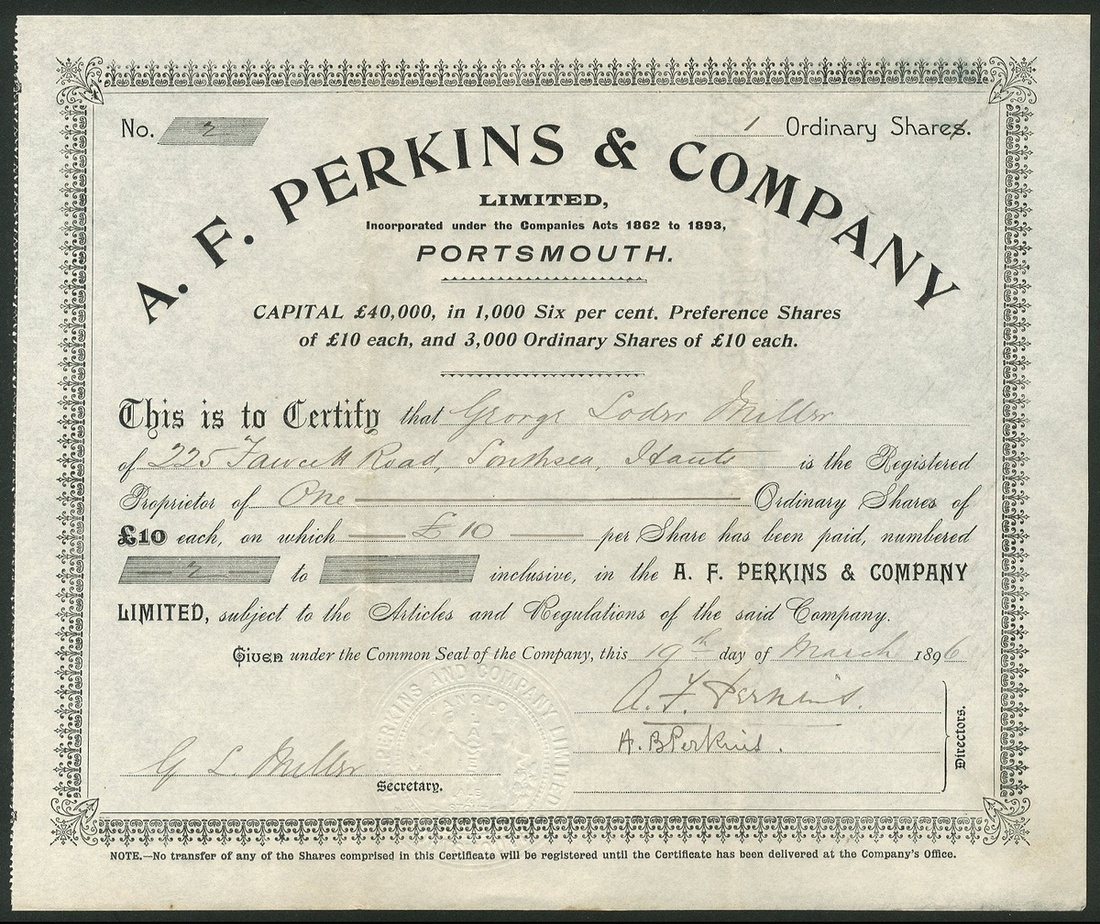 No. 2
1 Ordinary Shares.
A. F. PERKINS & COMPANY
LIMITED,
Incorporated under the Companies Acts 1862 to 1893,
PORTSMOUTH.
CAPITAL £40,000, in 1,000 Six per cent. Preference Shares
of £10 each, and 3,000 Ordinary Shares of £10 each.
This is to Certify that George Loder Miller
of 225 Fawcett Road, Southsea, Hants is the Registered
Proprietor of One Ordinary Shares of
£10 each, on which £10 per Share has been paid, numbered
2 to inclusive, in the A. F. PERKINS & COMPANY
LIMITED, subject to the Articles and Regulations of the said Company.
Given under the Common Seal of the Company, this 19th day of March 1896
A. F. Perkins.
A. B Perkins.
Directors.
G L Miller
Secretary.
PERKINS AND COMPANY LIMITED
NOTE.—No transfer of any of the Shares comprised in this Certificate will be registered until the Certificate has been delivered at the Company's Office.